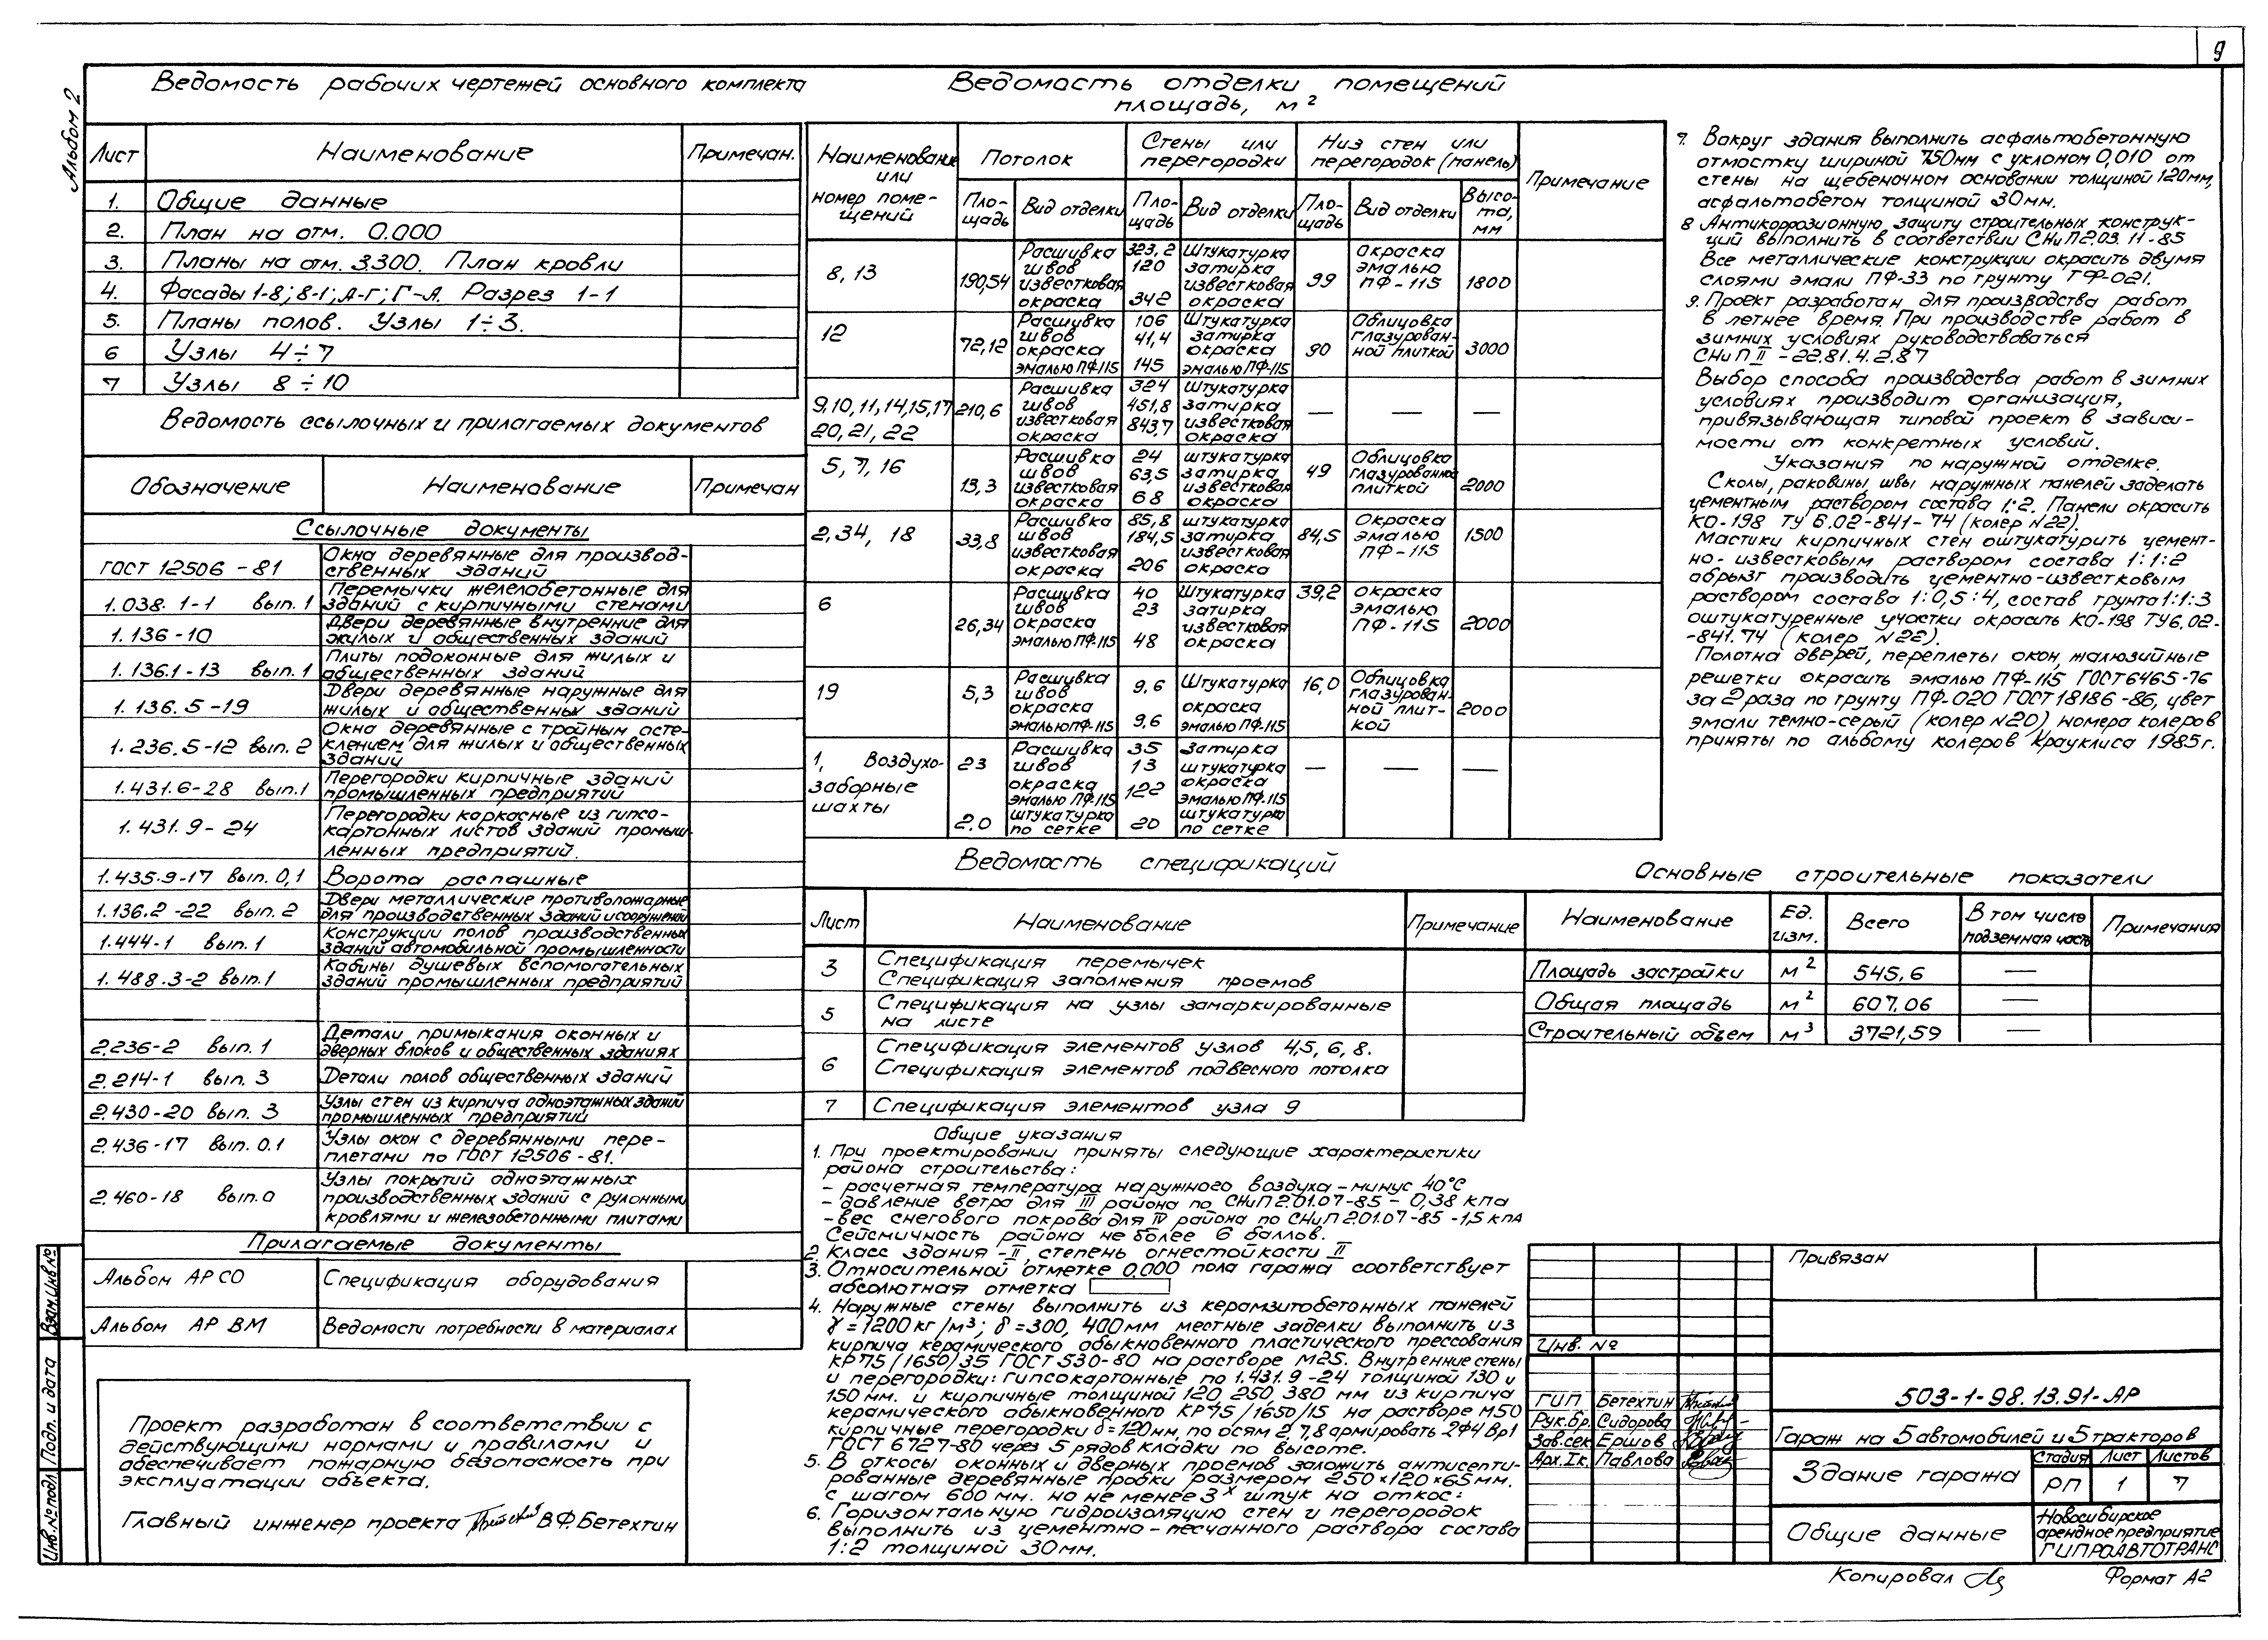 9
Альбом 2
Ведомость рабочих чертежей основного комплекта
Лист Наименование Примечан.
1. Общие данные
2. План на отм. 0.000
3. Планы на отм. 3.300. План кровли
4. Фасады 1-8; 8-1; А-Г; Г-А. Разрез 1-1
5. Планы полов. Узлы 1÷3.
6 Узлы 4÷7
7 Узлы 8÷10
Ведомость ссылочных и прилагаемых документов
Обозначение Наименование Примечан
Ссылочные документы
ГОСТ 12506-81 Окна деревянные для производ-
ственных зданий
1.038.1-1 вып. 1 Перемычки железобетонные для
зданий с кирпичными стенами
1.136-10 Двери деревянные внутренние для
жилых и общественных зданий
1.136.1-13 вып. 1 Плиты подоконные для жилых и
общественных зданий
1.136.5-19 Двери деревянные наружные для
жилых и общественных зданий
1.236.5-12 вып. 2 Окна деревянные с тройным осте-
клением для жилых и общественных
зданий
1.431.6-28 вып.1 Перегородки кирпичные зданий
промышленных предприятий
1.431.9-24 Перегородки каркасные из гипсо-
картонных листов зданий промыш-
ленных предприятий.
1.435.9-17 вып. 0,1 Ворота распашные
1.136.2-22 вып. 2 Двери металлические противопожарные
для производственных зданий и сооружений
1.444-1 вып. 1 Конструкции полов производственных
зданий автомобильной промышленности
1.488.3-2 вып.1 Кабины душевых вспомогательных
зданий промышленных предприятий
2.236-2 вып. 1 Детали примыкания оконных и
дверных блоков и общественных зданиях
2.214-1 вып. 3 Детали полов общественных зданий
2.430-20 вып. 3 Узлы стен из кирпича одноэтажных зданий
промышленных предприятий
2.436-17 вып. 0.1 Узлы окон с деревянными пере-
плетами по ГОСТ 12506-81.
2.460-18 вып.0 Узлы покрытий одноэтажных
производственных зданий с рулонными
кровлями и железобетонными плитами
Прилагаемые документы
Альбом АР СО Спецификация оборудования
Альбом АР ВМ Ведомости потребности в материалах
Проект разработан в соответствии с
действующими нормами и правилами и
обеспечивает пожарную безопасность при
эксплуатации объекта.
Главный инженер проекта В.Ф.Бетехтин
Взам.инв.№
Подп. и дата
Инв.№ подл
Ведомость отделки помещений
площадь, м²
Наименование или номер поме-щений Потолок Стены или перегородки Низ стен или перегородок (панель) Примечание
Пло-щадь Вид отделки Пло-щадь Вид отделки Пло-щадь Вид отделки Высо-та, мм
8, 13 190,54 Расшивка швов известковая окраска 323,2 120 342 Штукатурка затирка известковая окраска 99 Окраска эмалью ПФ-115 1800
12 72,12 Расшивка швов окраска эмалью ПФ-115 106 41,4 145 Штукатурка затирка окраска эмалью ПФ-115 90 Облицовка глазурован-ной плиткой 3000
9,10,11,14,15,17 20,21,22 210,6 Расшивка швов известковая окраска 324 451,8 843,7 Штукатурка затирка известковая окраска — — —
5, 7, 16 13,3 Расшивка швов известковая окраска 24 63,5 68 штукатурка затирка известковая окраска 49 Облицовка глазурованной плиткой 2000
2,34, 18 33,8 Расшивка швов известковая окраска 85,8 184,5 206 штукатурка затирка известковая окраска 84,5 Окраска эмалью ПФ-115 1500
6 26,34 Расшивка швов окраска эмалью ПФ-115 40 23 48 Штукатурка затирка известковая окраска 39,2 окраска эмалью ПФ-115 2000
19 5,3 Расшивка швов окраска эмалью ПФ-115 9,6 9,6 Штукатурка окраска эмалью ПФ-115 16,0 Облицовка глазурован-ной плит-кой 2000
1, Воздухо-заборные шахты 23 2.0 Расшивка швов окраска эмалью ПФ-115 штукатурка по сетке 35 13 122 20 Затирка штукатурка окраска эмалью ПФ-115 штукатурка по сетке — — —
Ведомость спецификаций
Лист Наименование Примечание
3 Спецификация перемычек
Спецификация заполнения проемов
5 Спецификация на узлы замаркированные
на листе
6 Спецификация элементов узлов 4,5, 6, 8.
Спецификация элементов подвесного потолка
7 Спецификация элементов узла 9
Общие указания
1. При проектировании приняты следующие характеристики
района строительства:
- расчетная температура наружного воздуха - минус 40°С
- давление ветра для III района по СНиП 2.01.07-85 - 0,38 кПа
- вес снегового покрова для IV района по СНиП 2.01.07-85 -1,5 кПА
Сейсмичность района не более 6 баллов.
2. Класс здания -II, степень огнестойкости II
3. Относительной отметке 0.000 пола гаража соответствует
абсолютная отметка
4. Наружные стены выполнить из керамзитобетонных панелей
γ=1200 кг/м³; δ=300, 400мм местные заделки выполнить из
кирпича керамического обыкновенного пластического прессования
КР75/1650/35 ГОСТ 530-80 на растворе М25. Внутренние стены
и перегородки: гипсокартонные по 1.431.9-24 толщиной 130 и
150мм. и кирпичные толщиной 120, 250, 380 мм из кирпича
керамического обыкновенного КР75/1650/15 на растворе М50
кирпичные перегородки δ=120мм, по осям 2,7,8 армировать 2Ф4 Вр1
ГОСТ 6727-80 через 5 рядов кладки по высоте.
5. В откосы оконных и дверных проемов заложить антисепти-
рованные деревянные пробки размером 250×120×65мм.
с шагом 600 мм. но не менее 3х штук на откос:
6. Горизонтальную гидроизоляцию стен и перегородок
выполнить из цементно-песчанного раствора состава
1:2 толщиной 30мм.
7. Вокруг здания выполнить асфальтобетонную
отмостку шириной 750мм с уклоном 0,010 от
стены на щебеночном основании толщиной 120мм,
асфальтобетон толщиной 30мм.
8 Антикоррозионную защиту строительных конструк-
ций выполнить в соответствии СНиП 2.03.11-85
Все металлические конструкции окрасить двумя
слоями эмали ПФ-33 по грунту ГФ-021.
9. Проект разработан для производства работ
в летнее время. При производстве работ в
зимних условиях руководствоваться
СНиП II-22.81.4.2.87
Выбор способа производства работ в зимних
условиях производит организация,
привязывающая типовой проект в зависи-
мости от конкретных условий.
Указания по наружной отделке.
Сколы, раковины, швы наружных панелей заделать
цементным раствором состава 1:2. Панели окрасить
КО-198 ТУ 6.02-841-74 (колер N22).
Мастики кирпичных стен оштукатурить цемент-
но-известковым раствором состава 1:1:2
абрызг производить цементно-известковым
раствором состава 1:0,5:4, состав грунта 1:1:3
оштукатуренные участки окрасить КО-198 ТУ6.02-
-841.74 (колер N22).
Полотна дверей, переплеты окон, жалюзийные
решетки окрасить эмалью ПФ-115 ГОСТ6465-76
за 2 раза по грунту ПФ-020 ГОСТ18186-86, цвет
эмали темно-серый (колер N20) номера колеров
приняты по альбому колеров Крауклиса 1985г.
Основные строительные показатели
Наименование Ед. изм. Всего В том числе подземная часть Примечания
Площадь застройки м² 545,6 —
Общая площадь м² 607,06 —
Строительный объем м³ 3721,59 —
Привязан
Инв. №
503-1-98.13.91-АР
ГИП Бетехтин
Рук.бр. Сидорова
Зав.сек Ершов
Арх.Iк. Павлова
Гараж на 5 автомобилей и 5 тракторов
Здание гаража
Стадия Лист Листов
РП 1 7
Общие данные
Новосибирское
арендное предприятие
ГИПРОАВТОТРАНС
Копировал
Формат А2